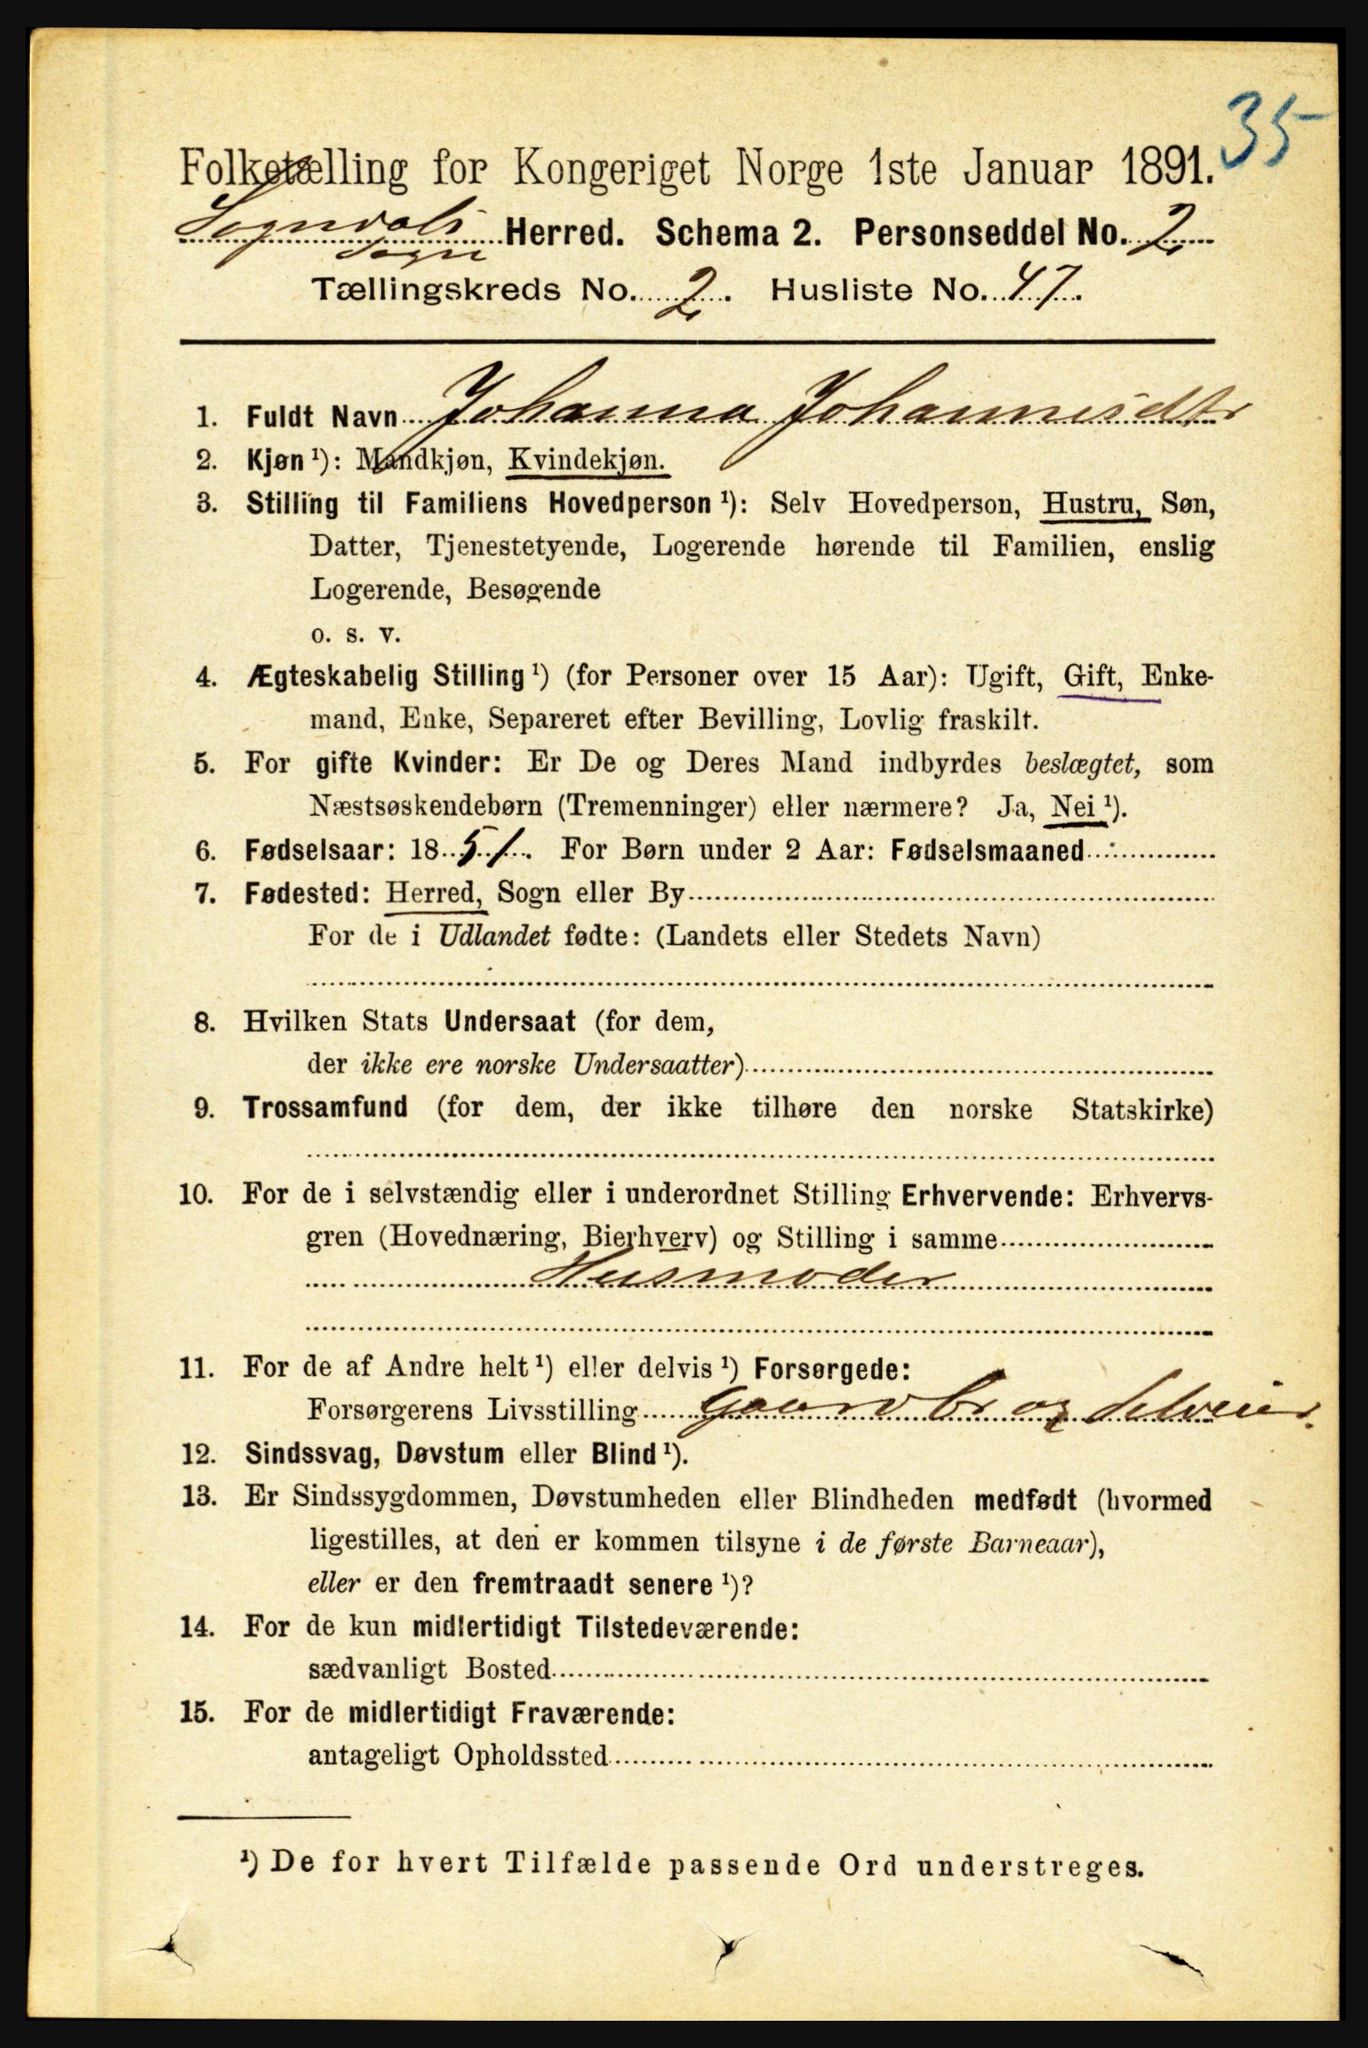 35
Folketælling for Kongeriget Norge 1ste Januar 1891.
Sogndals Herred. Schema 2. Personseddel No. 2
Sogn
Tællingskreds No. 2. Husliste No. 47.
1. Fuldt Navn Johanna Johannesdtr
2. Kjøn ¹): Mandkjøn, Kvindekjøn.
3. Stilling til Familiens Hovedperson ¹): Selv Hovedperson, Hustru, Søn,
Datter, Tjenestetyende, Logerende hørende til Familien, enslig
Logerende, Besøgende
o. s. v.
4. Ægteskabelig Stilling ¹) (for Personer over 15 Aar): Ugift, Gift, Enke-
mand, Enke, Separeret efter Bevilling, Lovlig fraskilt.
5. For gifte Kvinder: Er De og Deres Mand indbyrdes beslægtet, som
Næstsøskendebørn (Tremenninger) eller nærmere? Ja, Nei ¹).
6. Fødselsaar: 1851. For Børn under 2 Aar: Fødselsmaaned
7. Fødested: Herred, Sogn eller By
For de i Udlandet fødte: (Landets eller Stedets Navn)
8. Hvilken Stats Undersaat (for dem,
der ikke ere norske Undersaatter)
9. Trossamfund (for dem, der ikke tilhøre den norske Statskirke)
10. For de i selvstændig eller i underordnet Stilling Erhvervende: Erhvervs-
gren (Hovednæring, Bierhverv) og Stilling i samme
Husmoder
11. For de af Andre helt ¹) eller delvis ¹) Forsørgede:
Forsørgerens Livsstilling Gaardbr og Selveier.
12. Sindssvag, Døvstum eller Blind ¹).
13. Er Sindssygdommen, Døvstumheden eller Blindheden medfødt (hvormed
ligestilles, at den er kommen tilsyne i de første Barneaar),
eller er den fremtraadt senere ¹)?
14. For de kun midlertidigt Tilstedeværende:
sædvanligt Bosted
15. For de midlertidigt Fraværende:
antageligt Opholdssted
¹) De for hvert Tilfælde passende Ord understreges.